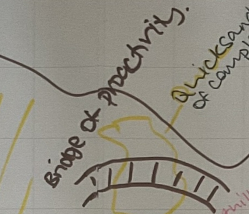 Bridge of Proactivity.
Quicksand
of compl